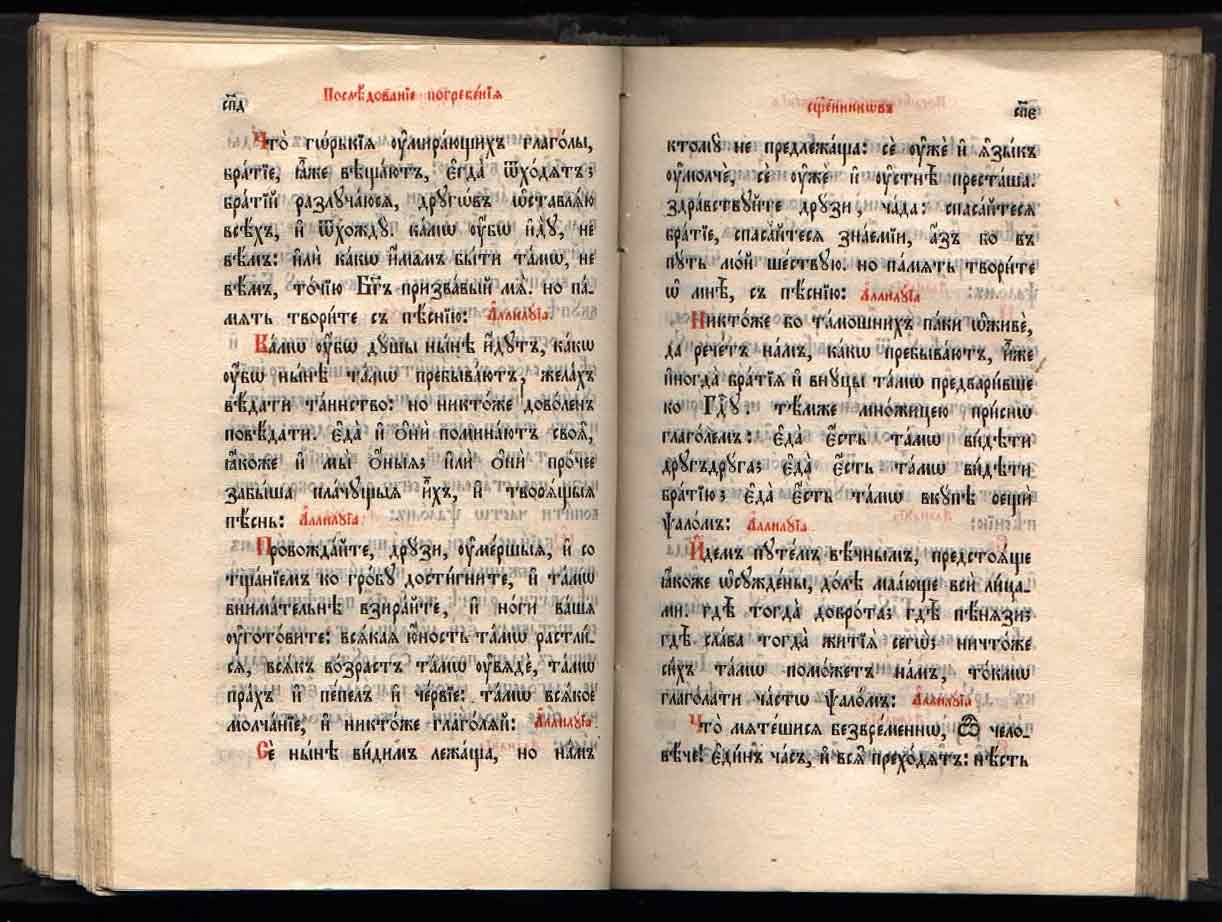 сп҃д
Послѣ́дованїе погребе́нїѧ
Что̀ гѡ́рькїѧ ᲂу҆мира́ющихъ глаго́лы,
бра́тїе, ꙗ҆̀же вѣща́ютъ, є҆гда̀ ѿхо́дѧтъ;
бра́тїй разлуча́юсѧ, дрꙋгѡ́въ ѡ҆ставлѧ́ю
всѣ́хъ, и҆ ѿхождꙋ̀. ка́мѡ ᲂу҆́бѡ и҆дꙋ̀, не
вѣ́мъ: и҆лѝ ка́кѡ и҆́мамъ бы́ти та́мѡ, не
вѣ́мъ, то́чїю Бг҃ъ призва́вый мѧ̀. но па́-
мѧть твори́те съ пѣ́снїю: А҆ллилꙋ́їа.
Ка́мѡ ᲂу҆́бѡ дꙋ́шы ны́нѣ и҆́дꙋтъ, ка́кѡ
ᲂу҆́бѡ ны́нѣ та́мѡ пребыва́ютъ, жела́хъ
вѣ́дати та́инство: но никто́же дово́ленъ
повѣ́дати. є҆да̀ и҆ ѻ҆нѝ помина́ютъ своѧ̑,
ꙗ҆́коже и҆ мы̀ ѻ҆́ныѧ; и҆лѝ ѻ҆нѝ про́чее
забы́ша пла́чꙋщыѧ и҆̀хъ, и҆ творѧ́щыѧ
пѣ́снь: А҆ллилꙋ́їа.
Провожда́йте, дрꙋ́зи, ᲂу҆ме́ршыѧ, и҆ со
тща́нїемъ ко гро́бꙋ дости́гните, и҆ та́мѡ
внима́тельнѣ взира́йте, и҆ но́ги ва́шѧ
ᲂу҆гото́вите: всѧ́каѧ ю҆́ность та́мѡ растлѝ-
сѧ, всѧ́къ во́зрастъ та́мѡ ᲂу҆вѧ́де, та́мѡ
пра́хъ и҆ пе́пелъ и҆ че́рвїе: та́мѡ всѧ́кое
молча́нїе, и҆ никто́же глаго́лѧй: А҆ллилꙋ́їа
Сѐ ны́нѣ ви́димъ лежа́ща, но на́мъ
сщ҃е́нникѡвъ
сп҃є
ктомꙋ̀ не предлежа́ща: сѐ ᲂу҆жѐ и҆ ѧ҆зы́къ
ᲂу҆молчѐ, сѐ ᲂу҆жѐ и҆ ᲂу҆стнѣ̀ преста́ша.
здра́вствꙋйте дрꙋ́зи, ча́да: спаса́йтесѧ
бра́тїе, спаса́йтесѧ зна́емїи, а҆́зъ бо въ
пꙋ́ть мо́й ше́ствꙋю. но па́мѧть твори́те
ѡ҆ мнѣ̀, съ пѣ́снїю: А҆ллилꙋ́їа
Никто́же бо та́мошнихъ па́ки ѡ҆живѐ,
да рече́тъ на́мъ, ка́кѡ пребыва́ютъ, и҆̀же
и҆ногда̀ бра́тїѧ и҆ внꙋ́цы та́мѡ предвари́вше
ко Гд҇ꙋ. тѣ́мже мно́жицею при́снѡ
глаго́лемъ: є҆да̀ є҆́сть та́мѡ ви́дѣти
дрꙋ́гъдрꙋга; є҆да̀ є҆́сть та́мѡ ви́дѣти
бра́тїю; є҆да̀ є҆́сть та́мѡ вкꙋ́пѣ рещѝ
ѱало́мъ: А҆ллилꙋ́їа
И҆́демъ пꙋте́мъ вѣ́чнымъ, предстоѧ́ще
ꙗ҆́коже ѡ҆сꙋжде́ны, до́лѣ маа́юще всѝ ли́ца-
ми. гдѣ̀ тогда̀ добро́та; гдѣ̀ пѣ́нѧзи;
гдѣ̀ сла́ва тогда̀ житїѧ̀ сегѡ̀; ничто́же
си́хъ та́мѡ помо́жетъ на́мъ, то́кмѡ
глаго́лати ча́стѡ ѱало́мъ: А҆ллилꙋ́їа
Что̀ мѧте́шисѧ безвре́меннѡ, ѽ чело-
вѣ́че! є҆ди́нъ ча́съ, и҆ всѧ̑ прехо́дѧтъ: нѣ́сть